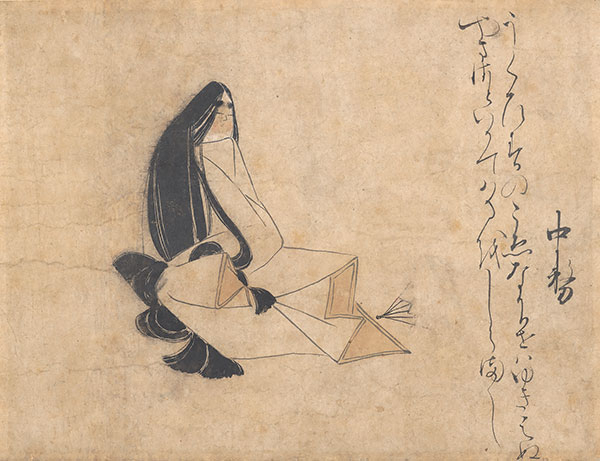 中務
うくひすのこゑなかりせはゆききえぬ
やまさといかてはるをしらまし